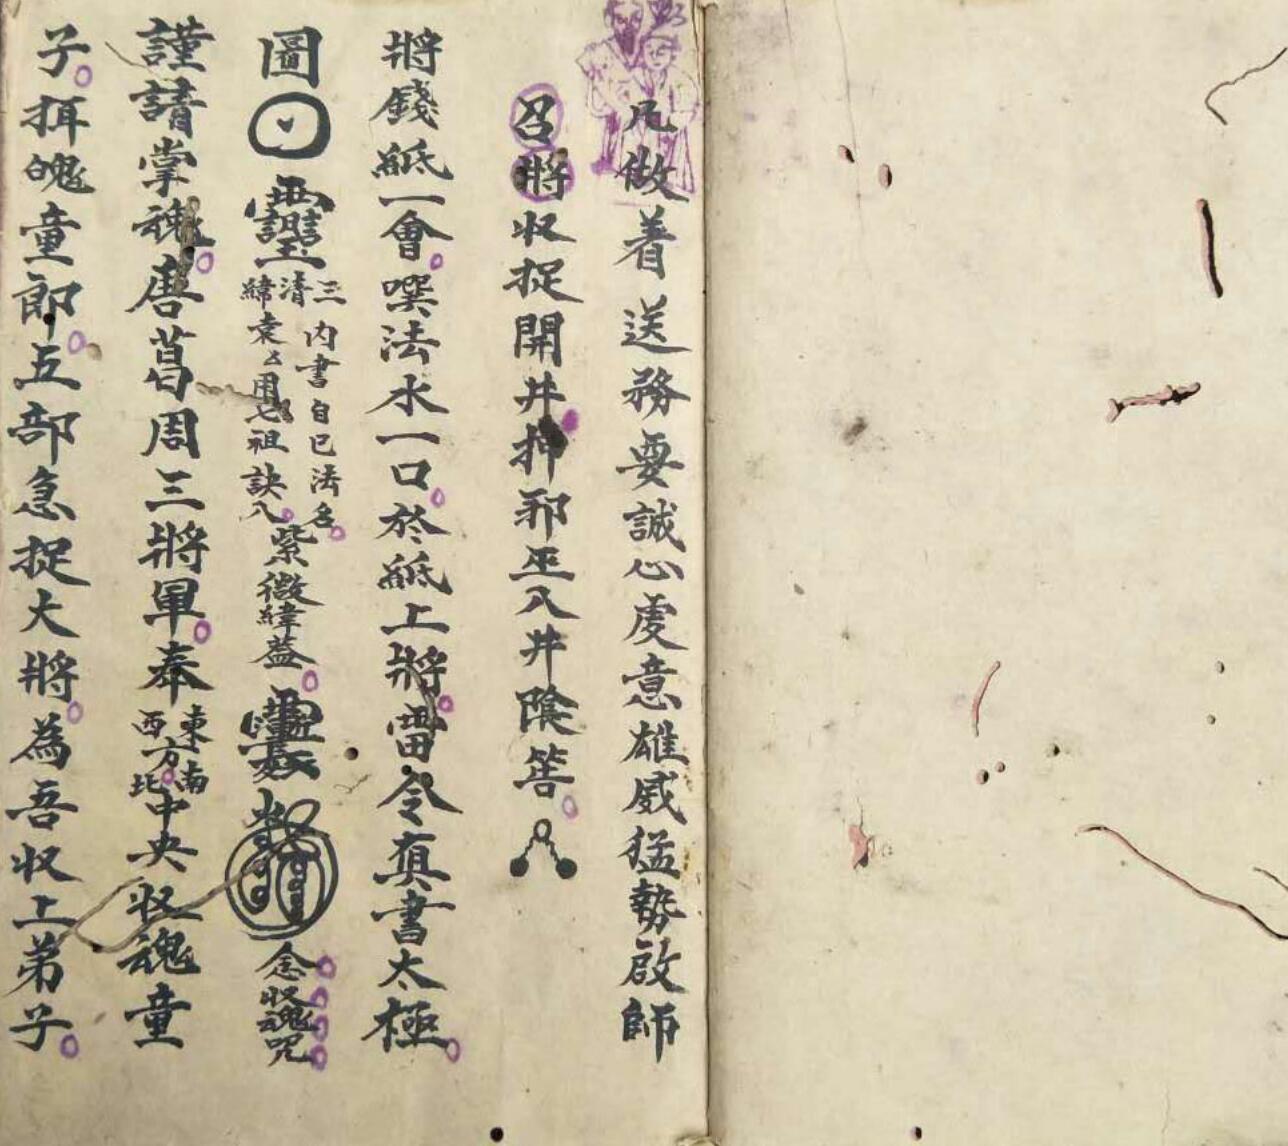 凡做着送務要誠心虔意雄威猛勢啟師
召將収捉開井押邪巫入井陰筶
將錢紙一會噀法水一口於紙上將雷令真書太極
圖 三清諱 內書自己法名 用七祖訣入 紫微諱蓋 念收魂咒
謹請掌魂唐葛周三將軍奉東南西北方中央収魂童
子拜魄童郎五部急捉大將為吾収上弟子